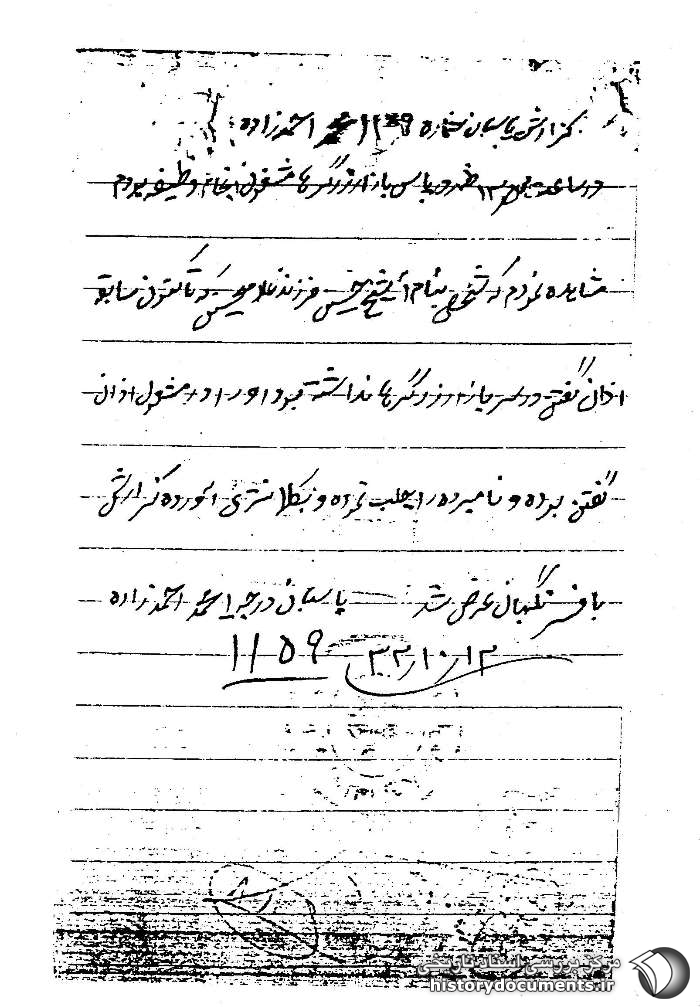 گزارش پاسبان شماره ۱۱۵۹ محمد احمدزاده
در ساعت ظهر پاس بازار زرگرها مشغول انجام وظیفه بودم
مشاهده نمودم که شخصی بنام شیخ حسن فرزند غلامحسین که تاکنون سابقه
اذان گفتن در سر بازار زرگرها نداشته بود او را در مشغول اذان
گفتن بوده و نامبرده را جلب نموده و بکلانتری آورده گزارش
بافسر نگهبان عرض شد پاسبان درجه ۱ محمد احمدزاده
۳۲/۱۰/۱۲ ۱۱۵۹
مرکز بررسی اسناد تاریخی
historydocuments.ir